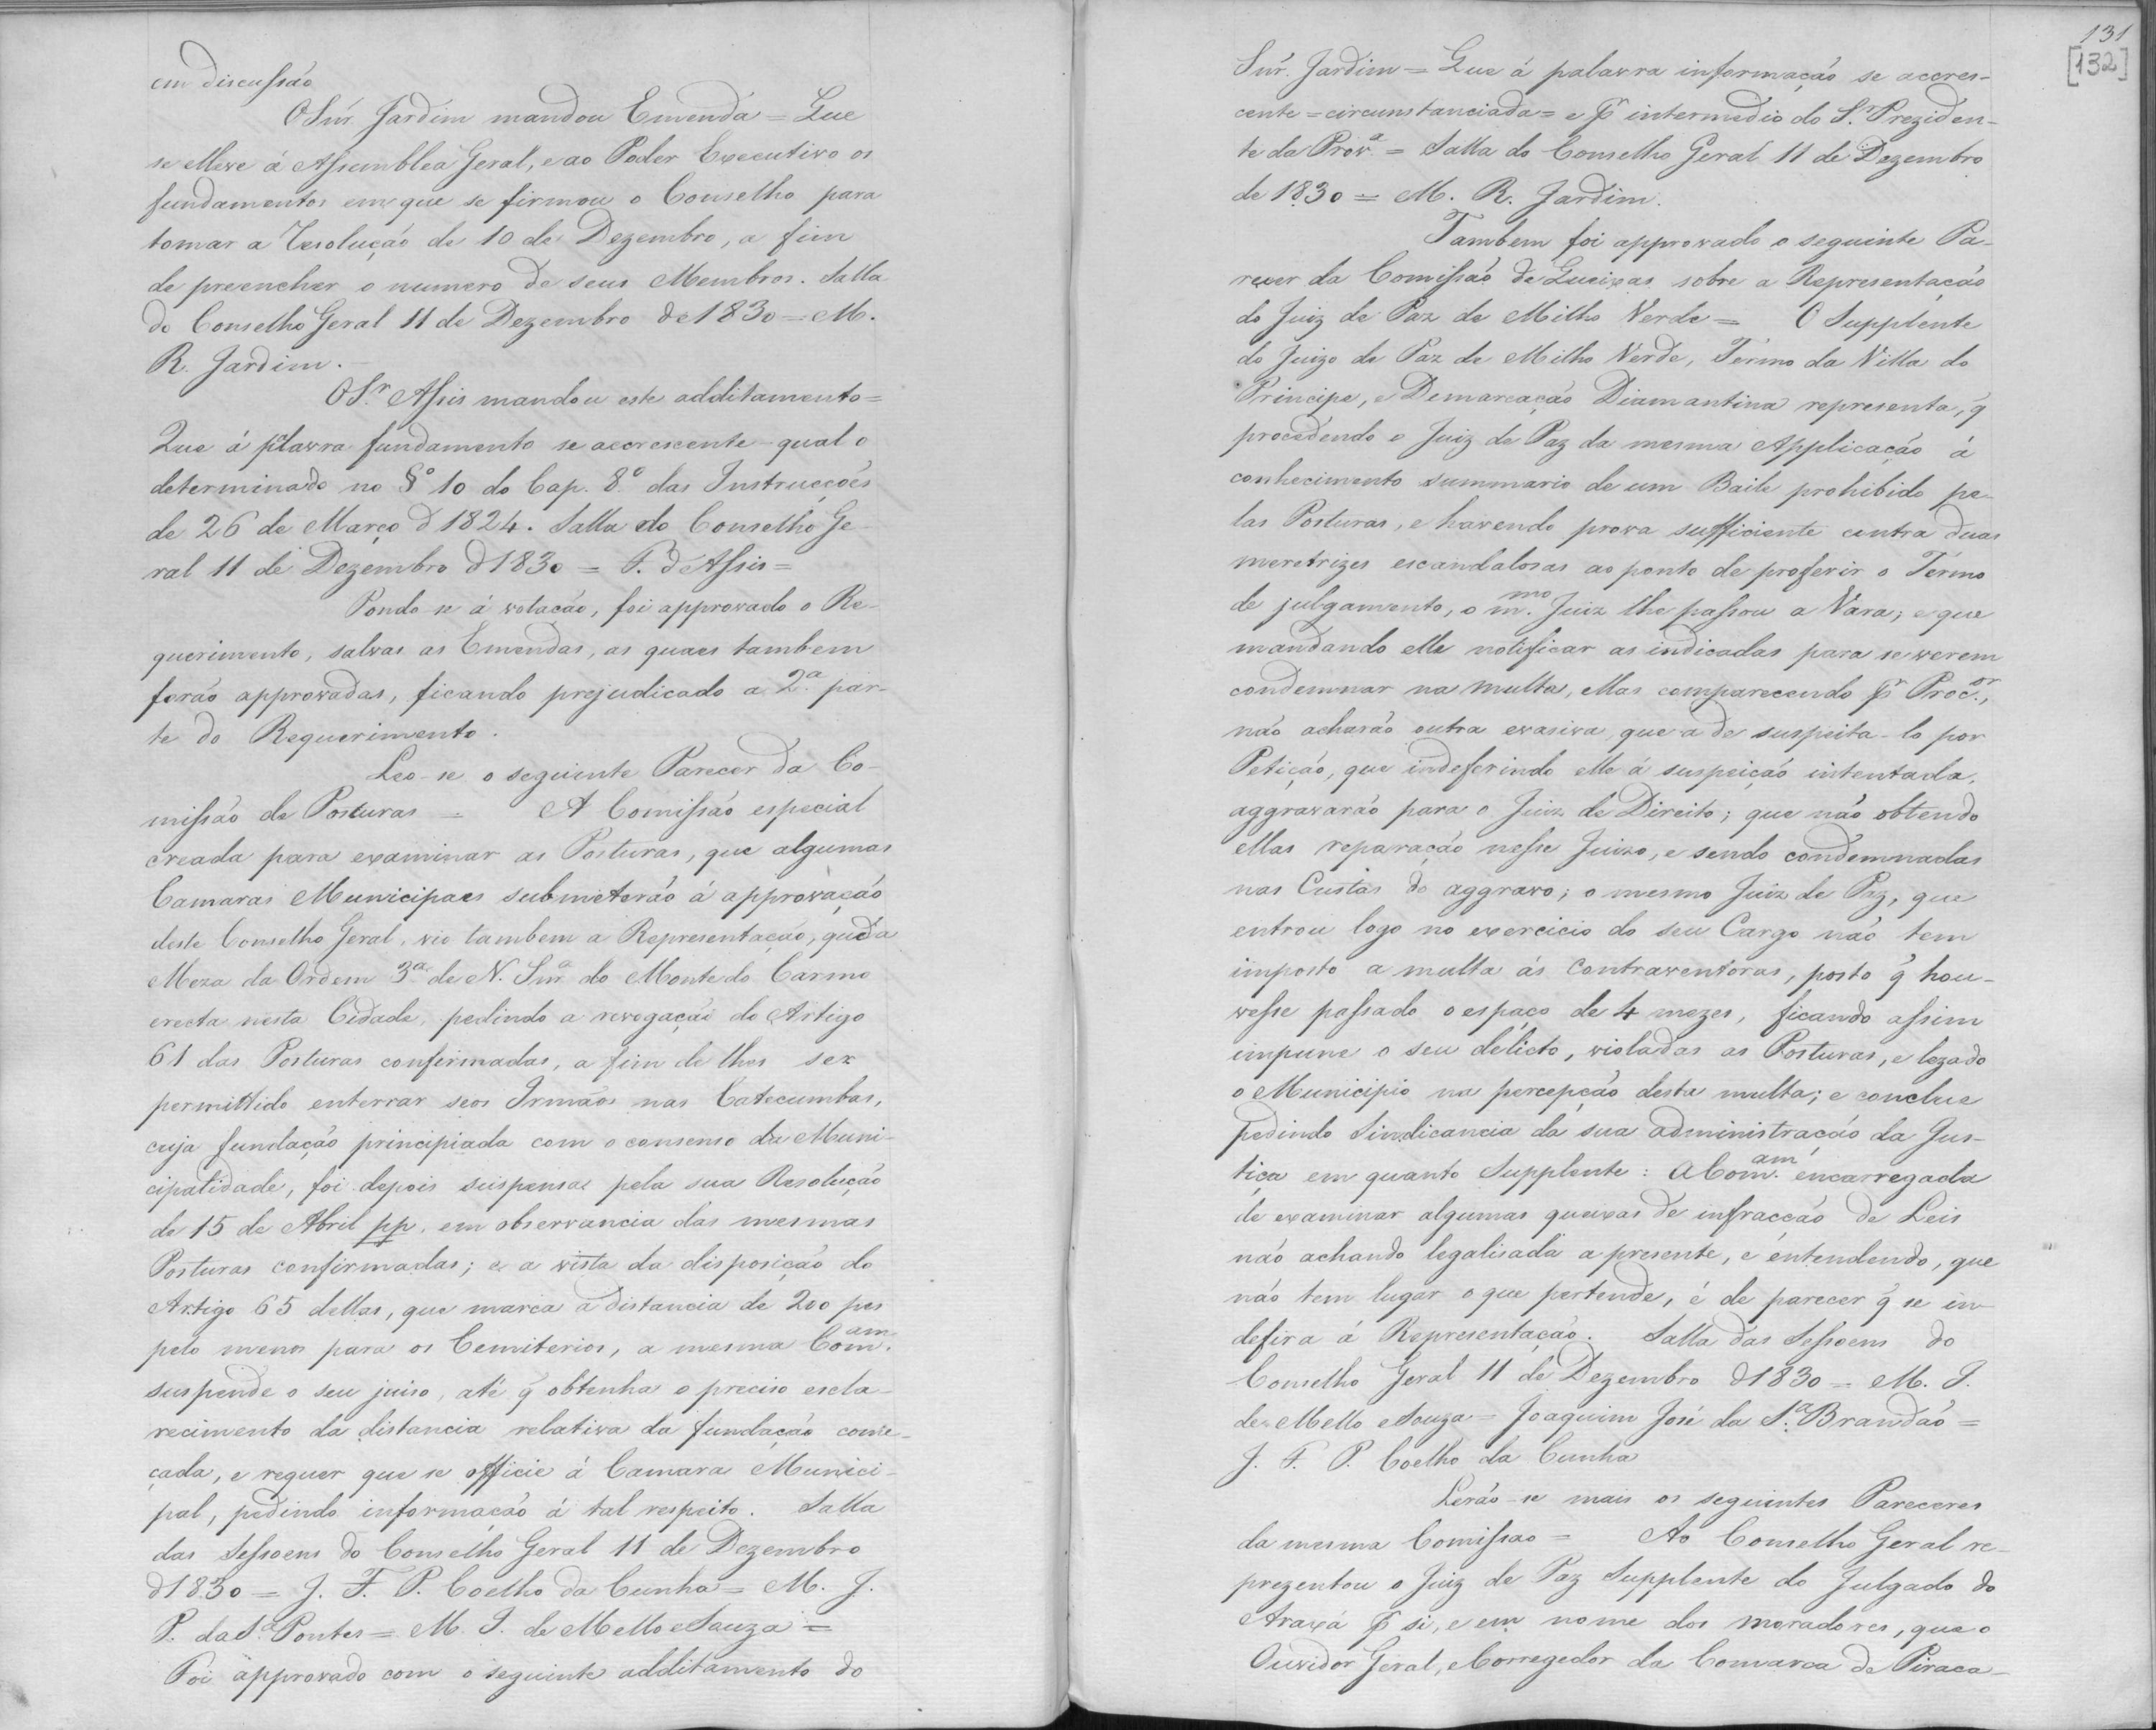 em discussão
O Snr. Jardim mandou Emenda = Que
se elleve á Assemblea Geral, e ao Poder Executivo os
fundamentos em que se firmou o Conselho para
tomar a Resolução de 10 de Dezembro, a fim
de preencher o numero de seus Membros. Salla
do Conselho Geral 11 de Dezembro de 1830 = M.
R. Jardim.
O Sr. Assis mandou este additamento =
Que á palavra fundamento se accrescente - qual o
determinado no §º 10 do Cap. 8.º das Instrucções
de 26 de Março d 1824. Salla do Conselho Ge-
ral 11 de Dezembro d 1830 = P. d'Assis =
Pondo-se á votação, foi approvado o Re-
querimento, salvas as Emendas, as quaes tambem
forão approvadas, ficando prejudicado a 2.ª par-
te do Requerimento.
Leo-se o seguinte Parecer da Co-
missão de Posturas = A Comissão especial
creada para examinar as Posturas, que algumas
Camaras Municipaes submeterão á approvação
deste Conselho Geral, vio tambem a Representação, que da
Meza da Ordem 3.ª de N. Snr.ª do Monte do Carmo
erecta nesta Cidade, pedindo a revogação do Artigo
61 das Posturas confirmadas, a fim de lhes ser
permittido enterrar seos Irmãos nas Catecumbas,
cuja fundação principiada com o consenso da Muni-
cipalidade, foi depois suspensa pela sua Resolução
de 15 de Abril pp. em observancia das mesmas
Posturas confirmadas; e a vista da disposição do
Artigo 65 dellas, que marca a distancia de 200 pes
pelo menos para os Cemiterios, a mesma Com.am
suspende o seu juiso, até q̃ obtenha o preciso escla-
recimento da distancia relativa da fundação come-
çada, e requer que se officie á Camara Munici-
pal, pedindo informação á tal respeito. Salla
das Sessoens do Conselho Geral 11 de Dezembro
d 1830 = J. F. P. Coelho da Cunha = M. J.
P. da S.ª Pontes = M. I. de Mello e Souza =
Foi approvado com o seguinte additamento do
131
[132]
Snr. Jardim = Que á palavra informação se accres-
cente = circunstanciada = e pr intermedio do S.r Preziden-
te da Prov.ª = Salla do Conselho Geral 11 de Dezembro
de 1830 = M. R. Jardim.
Tambem foi approvado o seguinte Pa-
recer da Comissão de Queixas sobre a Representação
do Juiz de Paz de Milho Verde = O Supplente
do Juizo de Paz de Milho Verde, Termo da Villa do
Principe, e Demarcação Diamantina representa, q̃
procedendo o Juiz de Paz da mesma Applicação á
conhecimento summario de um Baile prohibido pe-
las Posturas, e havendo prova sufficiente contra duas
meretrizes escandalosas ao ponto de proferir o Termo
de julgamento, o m.mo Juiz lhe passou a Vara; e que
mandando elle notificar as indicadas para se verem
condemnar na multa, ellas comparecendo pr Proc.or,
não acharão outra evasiva, que a de suspeita-lo por
Petição, que indeferindo elle á suspeição intentada,
aggravarão para o Juiz de Direito; que não obtendo
ellas reparação nesse Juizo, e sendo condemnadas
nas Custas do aggravo; o mesmo Juiz de Paz, que
entrou logo no exercicio do seu Cargo não tem
imposto a multa ás contraventoras, posto q̃ hou-
vesse passado o espaço de 4 mezes, ficando assim
impune o seu delicto, violadas as Posturas, e lezado
o Municipio na percepção desta multa; e conclue
pedindo Sindicancia da sua administração da Jus-
tiça em quanto Supplente: A Com.am encarregada
de examinar algumas queixas de infracção de Leis
não achando legalisada a presente, e entendendo, que
não tem lugar o que pertende, é de parecer q̃ se in-
defira á Representação. Salla das Sessoens do
Conselho Geral 11 de Dezembro d 1830 = M. I.
de Mello e Souza = Joaquim José da S.ª Brandão =
J. F. P. Coelho da Cunha
Lerão-se mais os seguintes Pareceres
da mesma Comissao = Ao Conselho Geral re-
prezentou o Juiz de Paz Supplente do Julgado do
Araxá pr si, e em nome dos moradores, que o
Ouvidor Geral, e Corregedor da Comarca de Piraca-